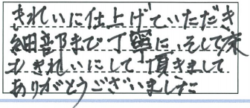 きれいに仕上げていただき
細部まで丁寧に、そして床
もきれいにして頂きまして
ありがとうございました